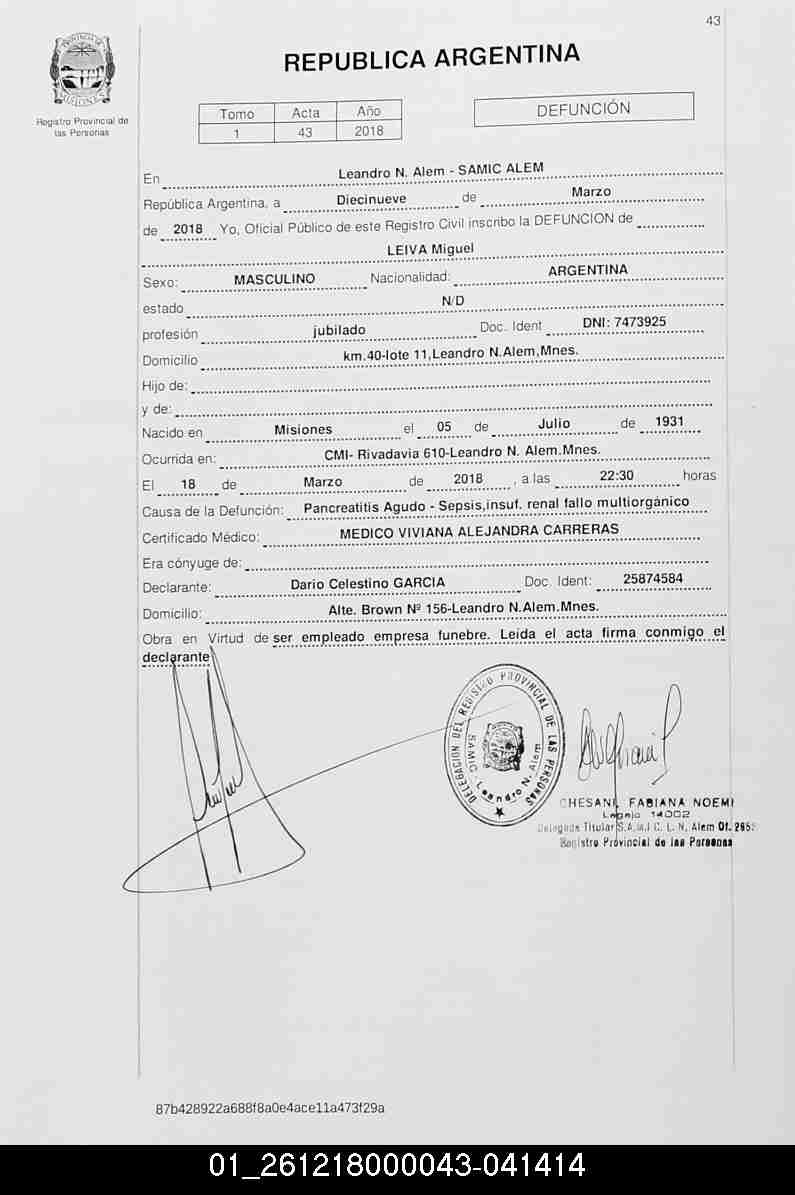 43
PROVINCIA DE
MISIONES
Registro Provincial de
las Personas
REPUBLICA ARGENTINA
Tomo Acta Año
1 43 2018
DEFUNCIÓN
En Leandro N. Alem - SAMIC ALEM
República Argentina, a Diecinueve de Marzo
de 2018 Yo, Oficial Público de este Registro Civil inscribo la DEFUNCION de
LEIVA Miguel
Sexo: MASCULINO Nacionalidad: ARGENTINA
estado N/D
profesión jubilado Doc. Ident DNI: 7473925
Domicilio km.40-lote 11,Leandro N.Alem,Mnes.
Hijo de:
y de:
Nacido en Misiones el 05 de Julio de 1931
Ocurrida en: CMI- Rivadavia 610-Leandro N. Alem.Mnes.
El 18 de Marzo de 2018 , a las 22:30 horas
Causa de la Defunción: Pancreatitis Agudo - Sepsis,insuf. renal fallo multiorgánico
Certificado Médico: MEDICO VIVIANA ALEJANDRA CARRERAS
Era cónyuge de:
Declarante: Dario Celestino GARCIA Doc. Ident: 25874584
Domicilio: Alte. Brown Nº 156-Leandro N.Alem.Mnes.
Obra en Virtud de ser empleado empresa funebre. Leída el acta firma conmigo el
declarante
DELEGACION DEL REGISTRO PROVINCIAL DE LAS PERSONAS
SAMIC - Leandro N. Alem
CHESANI, FABIANA NOEMI
Legajo 14002
Delegada Titular S.A.M.I.C. L. N. Alem Of. 265
Registro Provincial de las Personas
87b428922a688f8a0e4ace11a473f29a
01_261218000043-041414